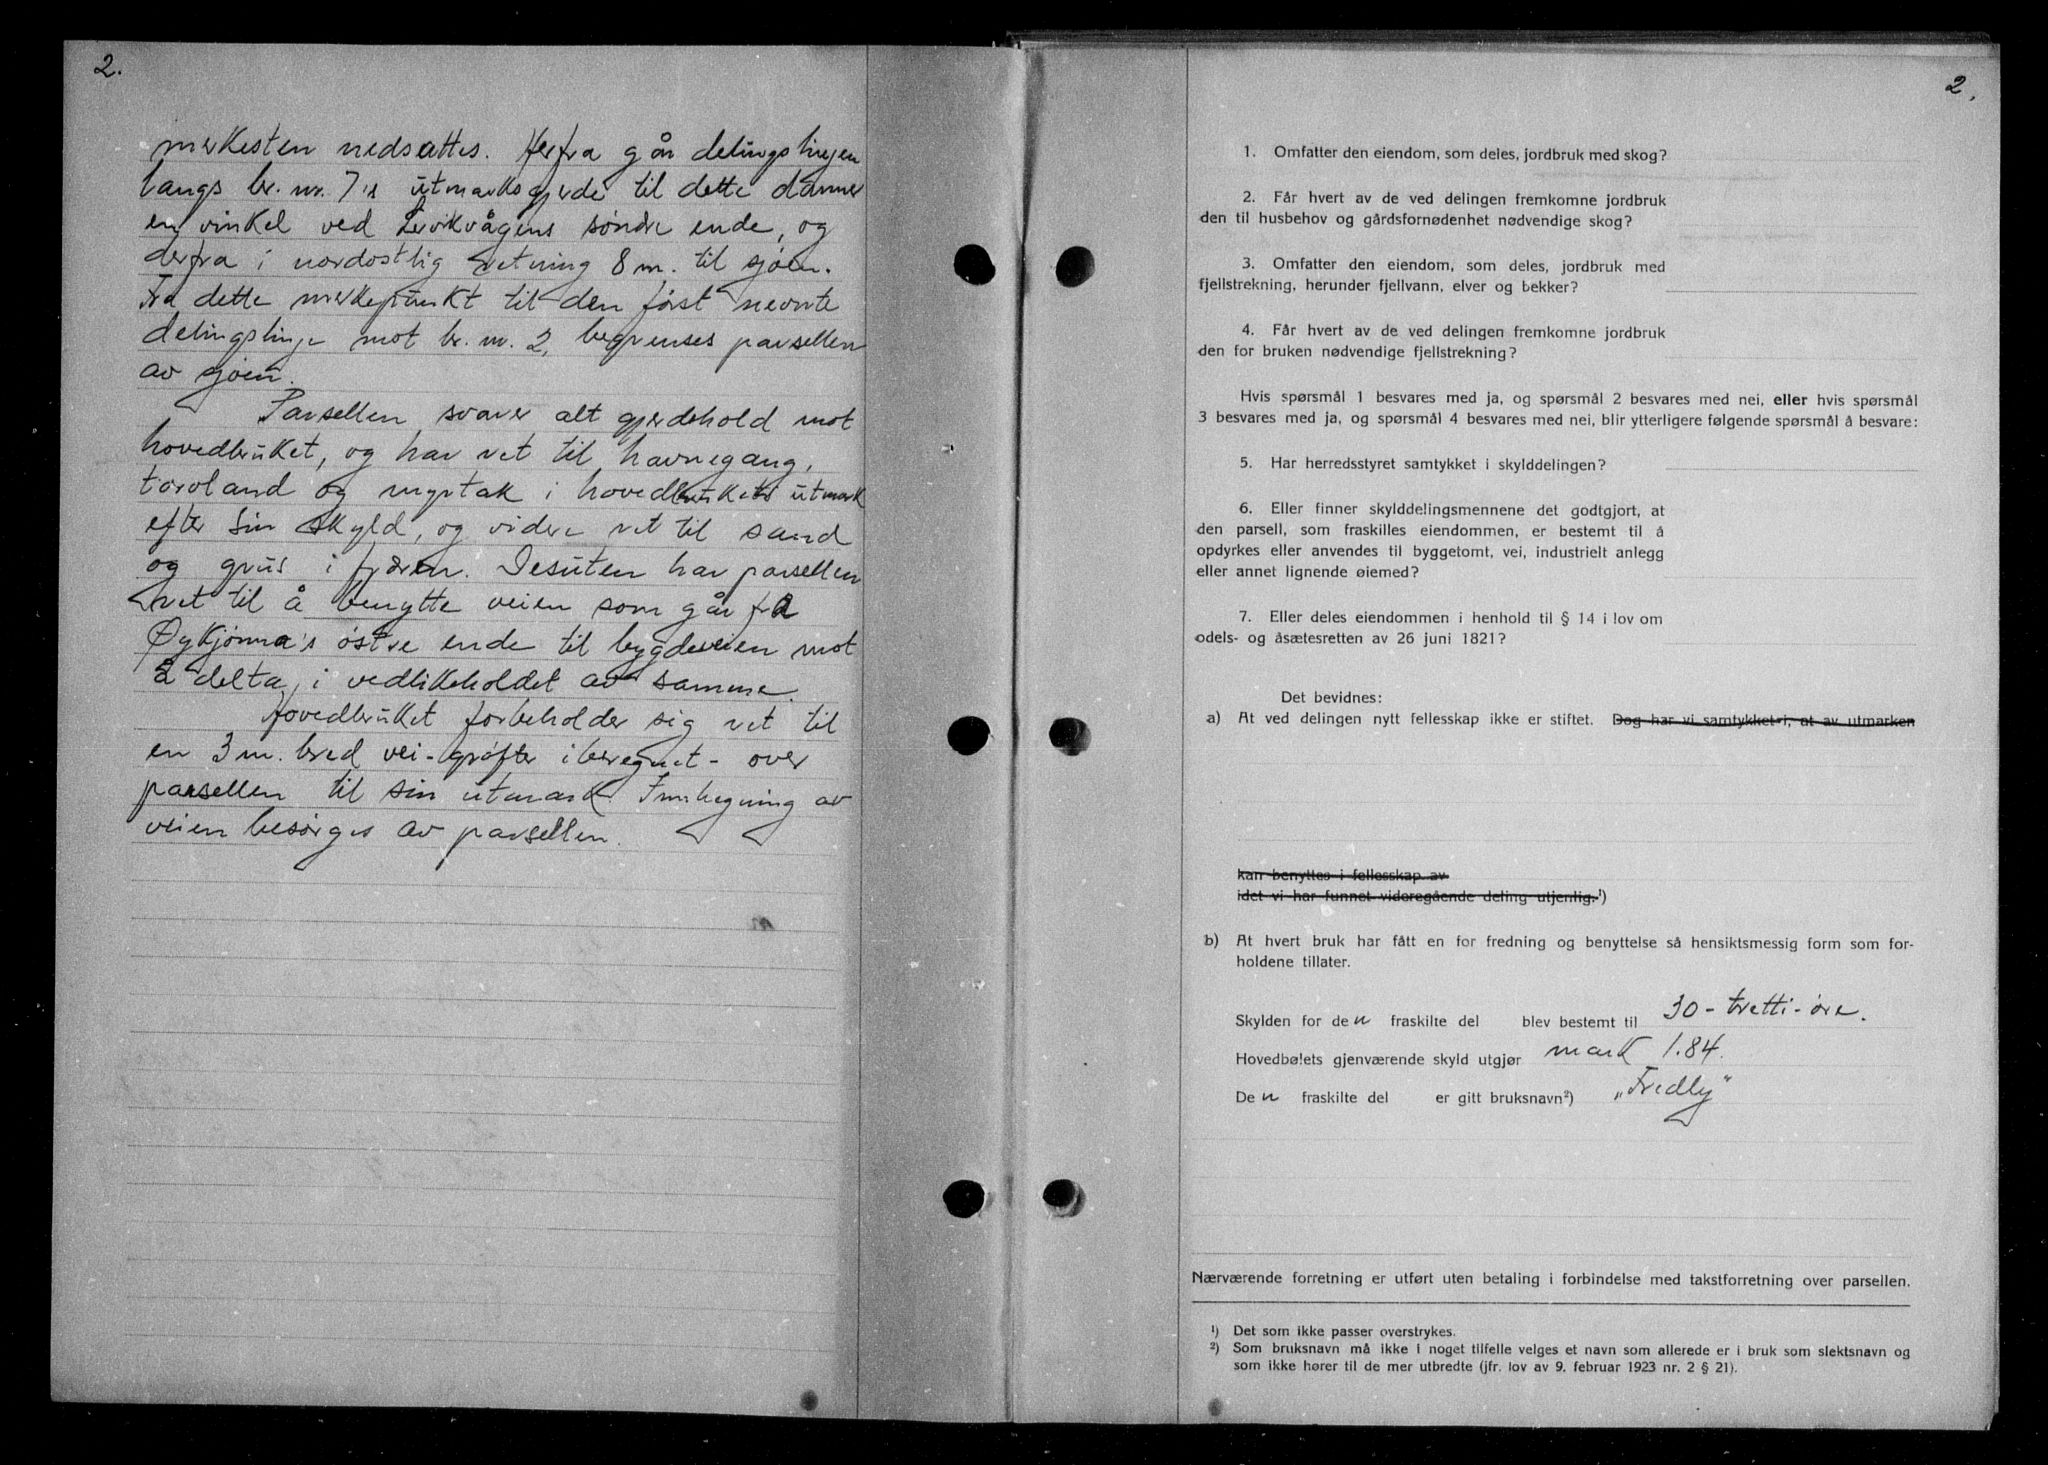 2.
merkesten nedsettes. Herfra går delingslinjen
langs br. nr. 7's utmarksgjerde til dette danner
en vinkel ved Lervikvågens søndre ende, og
derfra i nordøstlig retning 8 m. til sjøen.
Fra dette merkepunkt til den først nevnte
delingslinje mot br. nr. 2, begrenses parsellen
av sjøen.
Parsellen svarer alt gjerdehold mot
hovedbruket, og har ret til havnegang,
torvland og mystak i hovedbrukets utmark
efter sin skyld, og videre ret til sand
og grus i fjæren. Desuten har parsellen
ret til å benytte veien som går fra
Øykjønna's østre ende til bygdeveien mot
å delta i vedlikeholdet av samme.
Hovedbruket forbeholder sig ret til
en 3 m. bred vei - grøfter iberegnet - over
parsellen til sin utmark. Innhegning av
veien besørges av parsellen.
2.
1. Omfatter den eiendom, som deles, jordbruk med skog?
2. Får hvert av de ved delingen fremkomne jordbruk
den til husbehov og gårdsfornødenhet nødvendige skog?
3. Omfatter den eiendom, som deles, jordbruk med
fjellstrekning, herunder fjellvann, elver og bekker?
4. Får hvert av de ved delingen fremkomne jordbruk
den for bruken nødvendige fjellstrekning?
Hvis spørsmål 1 besvares med ja, og spørsmål 2 besvares med nei, eller hvis spørsmål
3 besvares med ja, og spørsmål 4 besvares med nei, blir ytterligere følgende spørsmål å besvare:
5. Har herredsstyret samtykket i skylddelingen?
6. Eller finner skylddelingsmennene det godtgjort, at
den parsell, som fraskilles eiendommen, er bestemt til å
opdyrkes eller anvendes til byggetomt, vei, industrielt anlegg
eller annet lignende øiemed?
7. Eller deles eiendommen i henhold til § 14 i lov om
odels- og åsætesretten av 26 juni 1821?
Det bevidnes:
a) At ved delingen nytt fellesskap ikke er stiftet. Dog har vi samtykket i, at av utmarken
kan benyttes i fellesskap av
idet vi har funnet videregående deling utjenlig.¹)
b) At hvert bruk har fått en for fredning og benyttelse så hensiktsmessig form som for-
holdene tillater.
Skylden for den fraskilte del blev bestemt til 30 - tretti - øre.
Hovedbølets gjenværende skyld utgjør mark 1.84.
Den fraskilte del er gitt bruksnavn²) „Fredly"
Nærværende forretning er utført uten betaling i forbindelse med takstforretning over parsellen.
¹) Det som ikke passer overstrykes.
²) Som bruksnavn må ikke i noget tilfelle velges et navn som allerede er i bruk som slektsnavn og
som ikke hører til de mer utbredte (jfr. lov av 9. februar 1923 nr. 2 § 21).